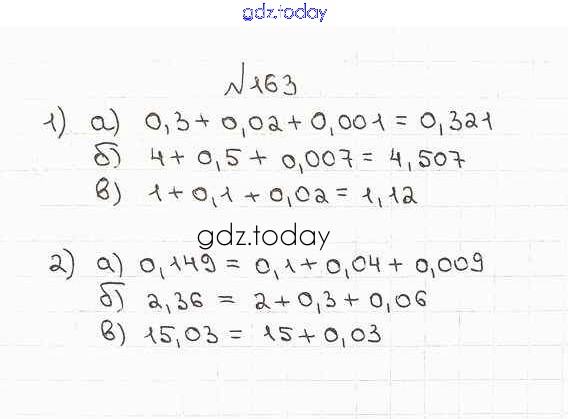 gdz.today
№163
1) а) 0,3 + 0,02 + 0,001 = 0,321
б) 4 + 0,5 + 0,007 = 4,507
в) 1 + 0,1 + 0,02 = 1,12
gdz.today
2) а) 0,149 = 0,1 + 0,04 + 0,009
б) 2,36 = 2 + 0,3 + 0,06
в) 15,03 = 15 + 0,03